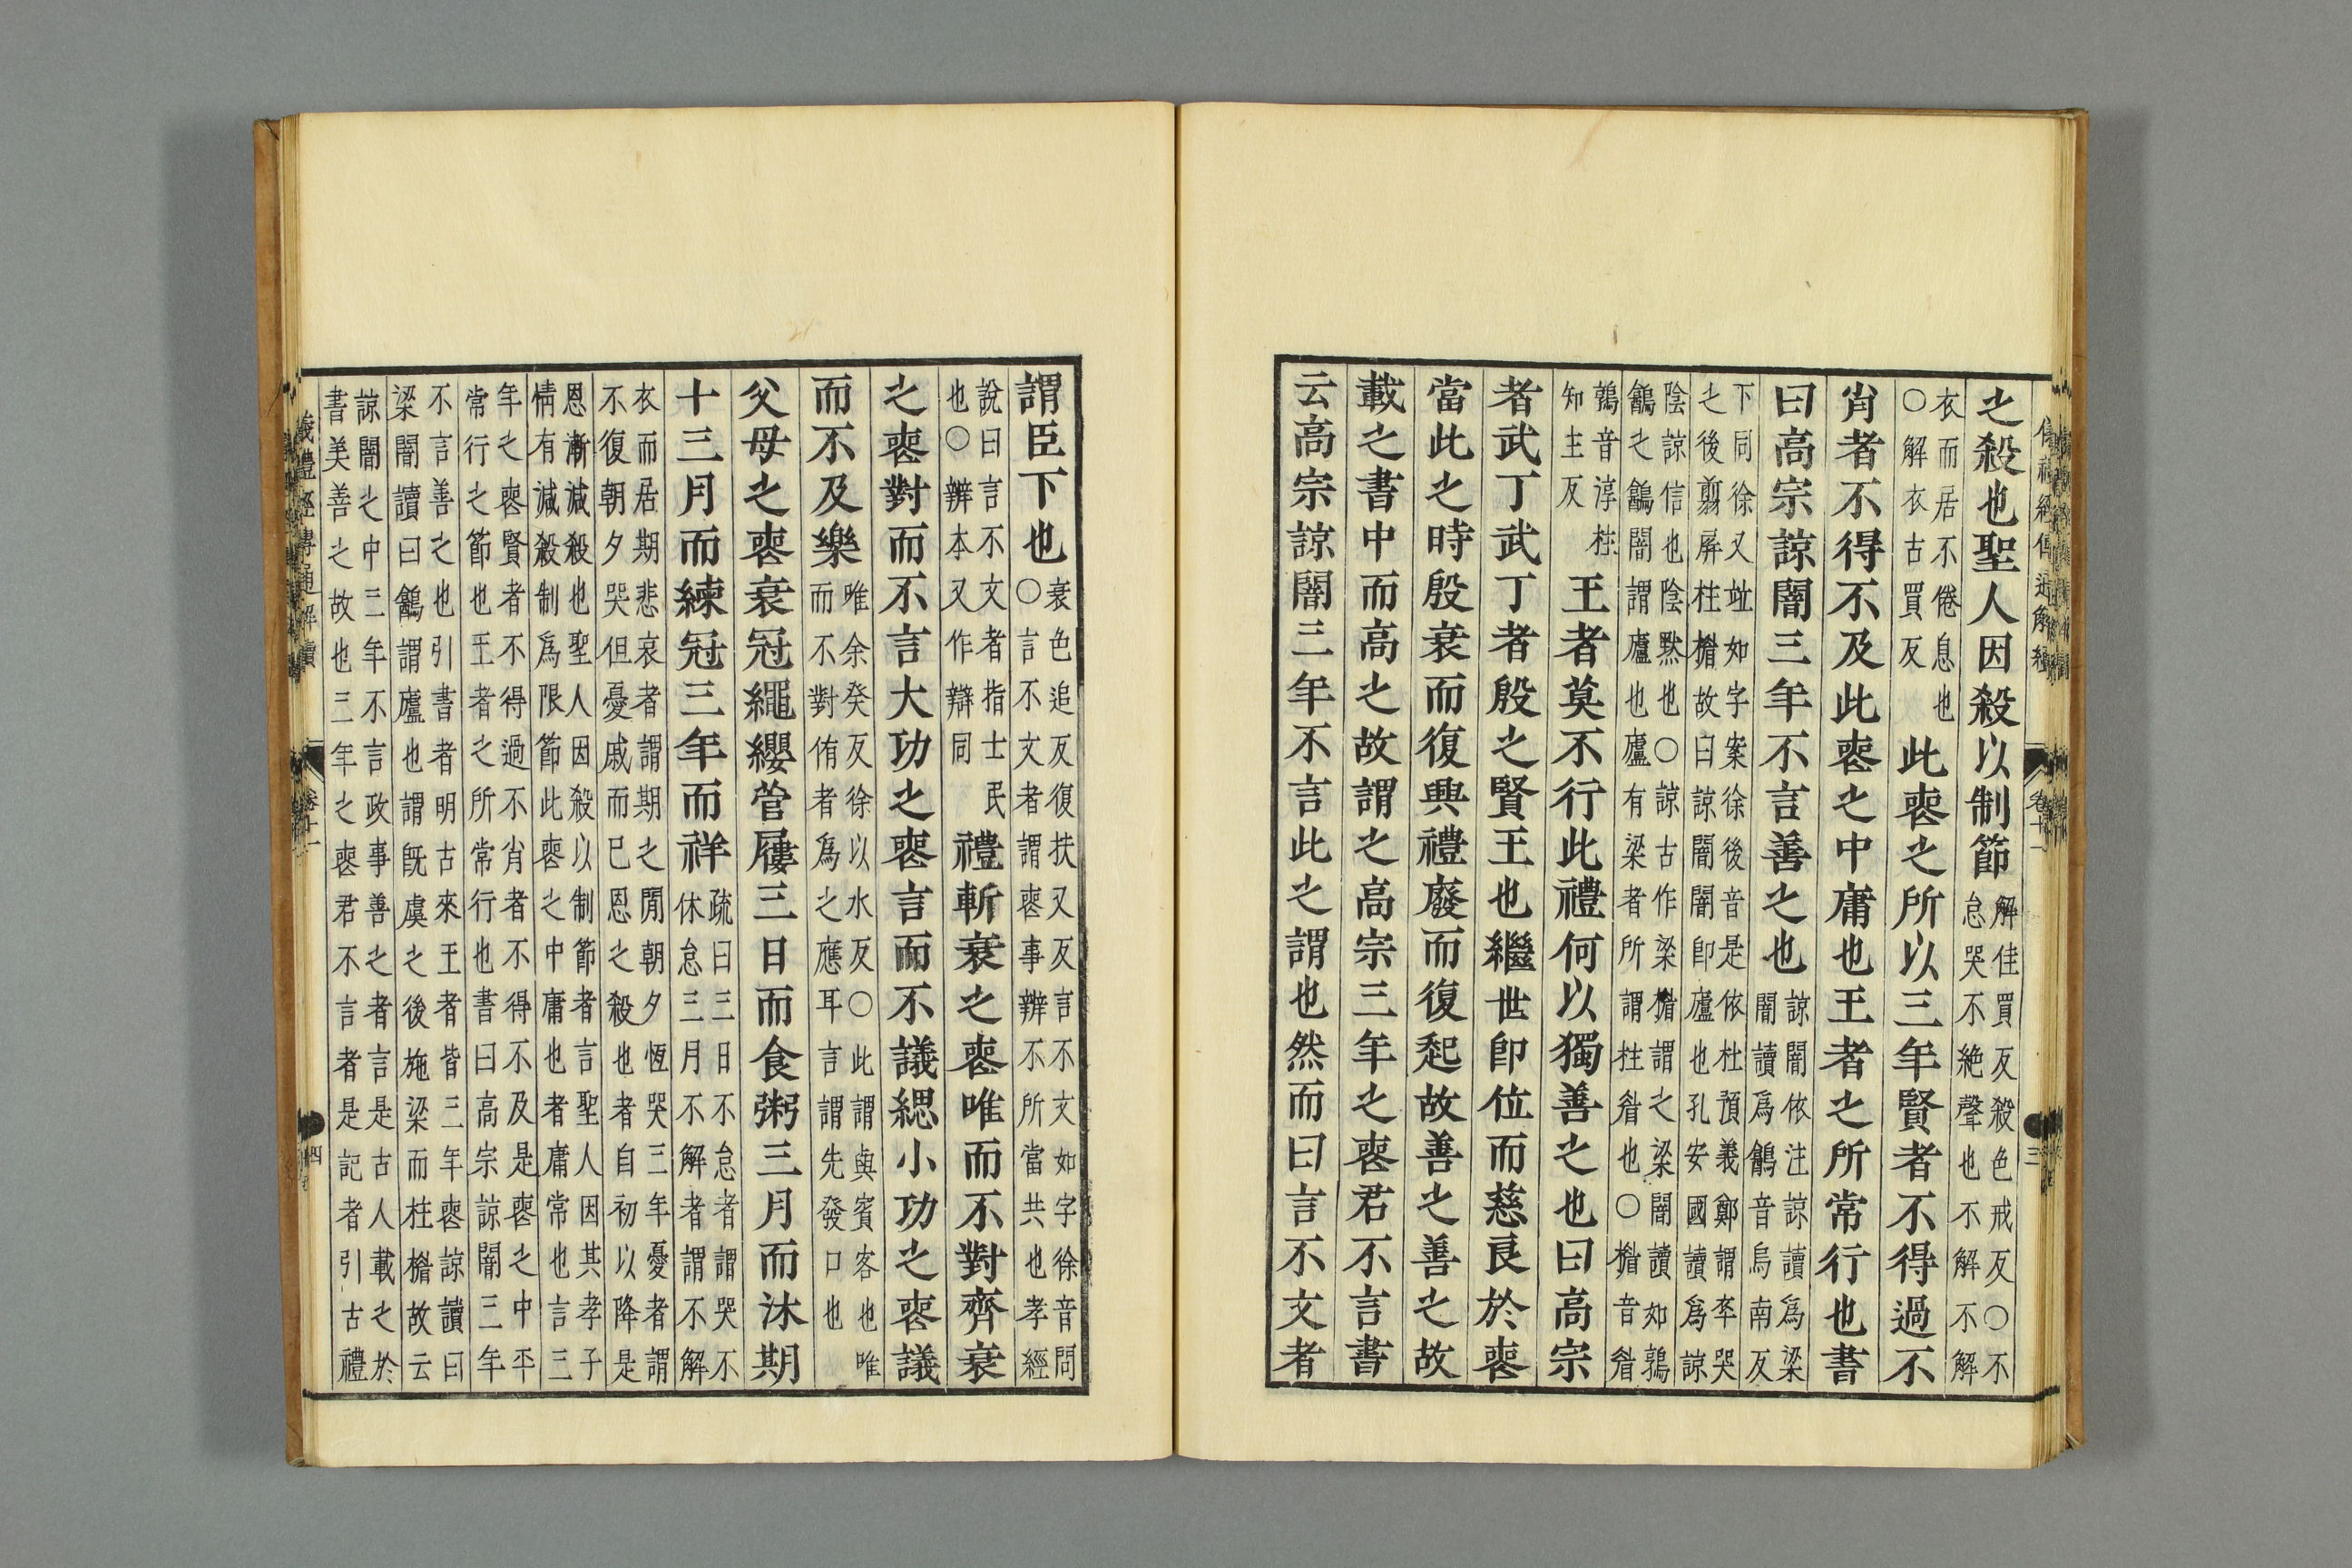 之殺也聖人因殺以制節解佳買反殺色戒反〇不怠哭不絶聲也不解不解
衣而居不倦息也〇解衣古買反此喪之所以三年賢者不得過不
肖者不得不及此喪之中庸也王者之所常行也書
曰高宗諒闇三年不言善之也諒闇依注諒讀為梁闇讀爲鶴音烏南反
下同徐又並如字案徐後音是依杜預義鄭謂卒哭之後翦屏柱楣故曰諒闇闇即廬也孔安國讀爲諒
陰諒信也陰黙也〇諒古作梁楣謂之梁闇讀如鶉鷂之鷂闇謂廬也廬有梁者所謂柱楣也〇楣音眉
鶉音淳柱知主反王者莫不行此禮何以獨善之也曰高宗
者武丁武丁者殷之賢王也繼世即位而慈良於喪
當此之時殷衰而復興禮廢而復起故善之善之故
載之書中而高之故謂之高宗三年之喪君不言書
云高宗諒闇三年不言此之謂也然而曰言不文者
謂臣下也衰色追反復扶又反言不文如字徐音問〇言不文者謂喪事辨不所當共也孝經
說曰言不文者指士民也〇辨本又作辯同禮斬衰之喪唯而不對齊衰
之喪對而不言大功之喪言而不議緦小功之喪議
而不及樂唯余癸反徐以水反〇此謂與賓客也唯而不對侑者爲之應耳言謂先發口也
父母之喪衰冠繩纓菅屨三日而食粥三月而沐期
十三月而練冠三年而祥疏曰三日不怠者謂哭不休怠三月不解者謂不解
衣而居期悲哀者謂期之閒朝夕恆哭三年憂者謂不復朝夕哭但憂戚而已恩之殺也者自初以降是
恩漸減殺也聖人因殺以制節者言聖人因其孝子情有減殺制爲限節此喪之中庸也者庸常也言三
年之喪賢者不得過不肖者不得不及是喪之中平常行之節也王者之所常行也書曰高宗諒闇三年
不言善之也引書者明古來王者皆三年喪諒讀曰梁闇讀曰鶴謂廬也謂旣虞之後施梁而柱楣故云
諒闇之中三年不言政事善之者言是古人載之於書美善之故也三年之喪君不言者是記者引古禮
儀禮經傳通解續
卷十一
四
三